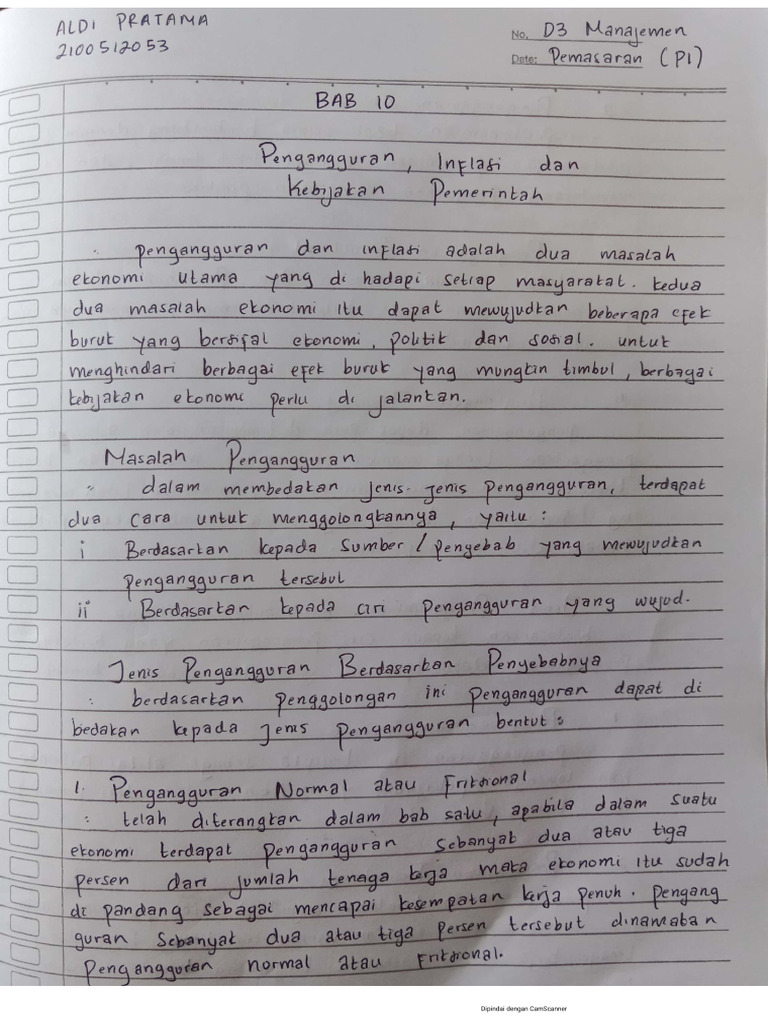 ALDI PRATAMA
2100512053
No. D3 Manajemen
Date: Pemasaran (P1)
BAB 10
Pengangguran, Inflasi dan
Kebijakan Pemerintah
: pengangguran dan inflasi adalah dua masalah
ekonomi utama yang di hadapi setiap masyarakat. kedua
dua masalah ekonomi itu dapat mewujudkan beberapa efek
buruk yang bersifat ekonomi, politik dan sosial. untuk
menghindari berbagai efek buruk yang mungkin timbul, berbagai
kebijakan ekonomi perlu di jalankan.
Masalah Pengangguran
: dalam membedakan jenis-jenis pengangguran, terdapat
dua cara untuk menggolongkannya, yaitu :
i Berdasarkan kepada sumber / penyebab yang mewujudkan
pengangguran tersebut
ii Berdasarkan kepada ciri pengangguran yang wujud.
Jenis Pengangguran Berdasarkan Penyebabnya
: berdasarkan penggolongan ini pengangguran dapat di
bedakan kepada jenis pengangguran bentuk :
1. Pengangguran Normal atau Friksional
: telah diterangkan dalam bab satu, apabila dalam suatu
ekonomi terdapat pengangguran sebanyak dua atau tiga
persen dari jumlah tenaga kerja maka ekonomi itu sudah
di pandang sebagai mencapai kesempatan kerja penuh. pengang
guran sebanyak dua atau tiga persen tersebut dinamakan
pengangguran normal atau friksional.
Dipindai dengan CamScanner